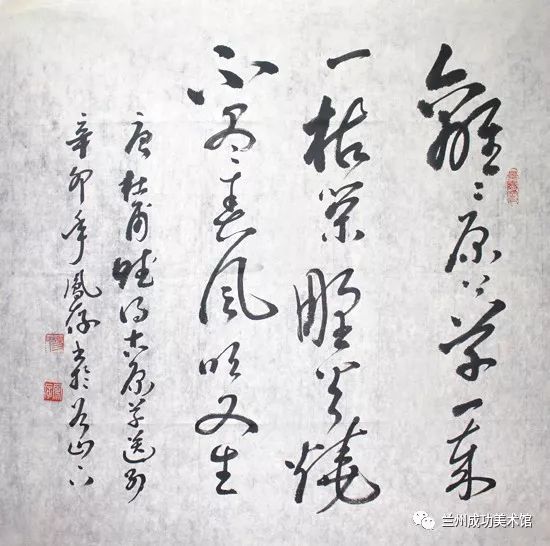 離離原上草一歲
一枯榮野火燒
不尽春風吹又生
唐杜甫賦得古原草送別
辛卯年鳳存书於山下
兰州成功美术馆